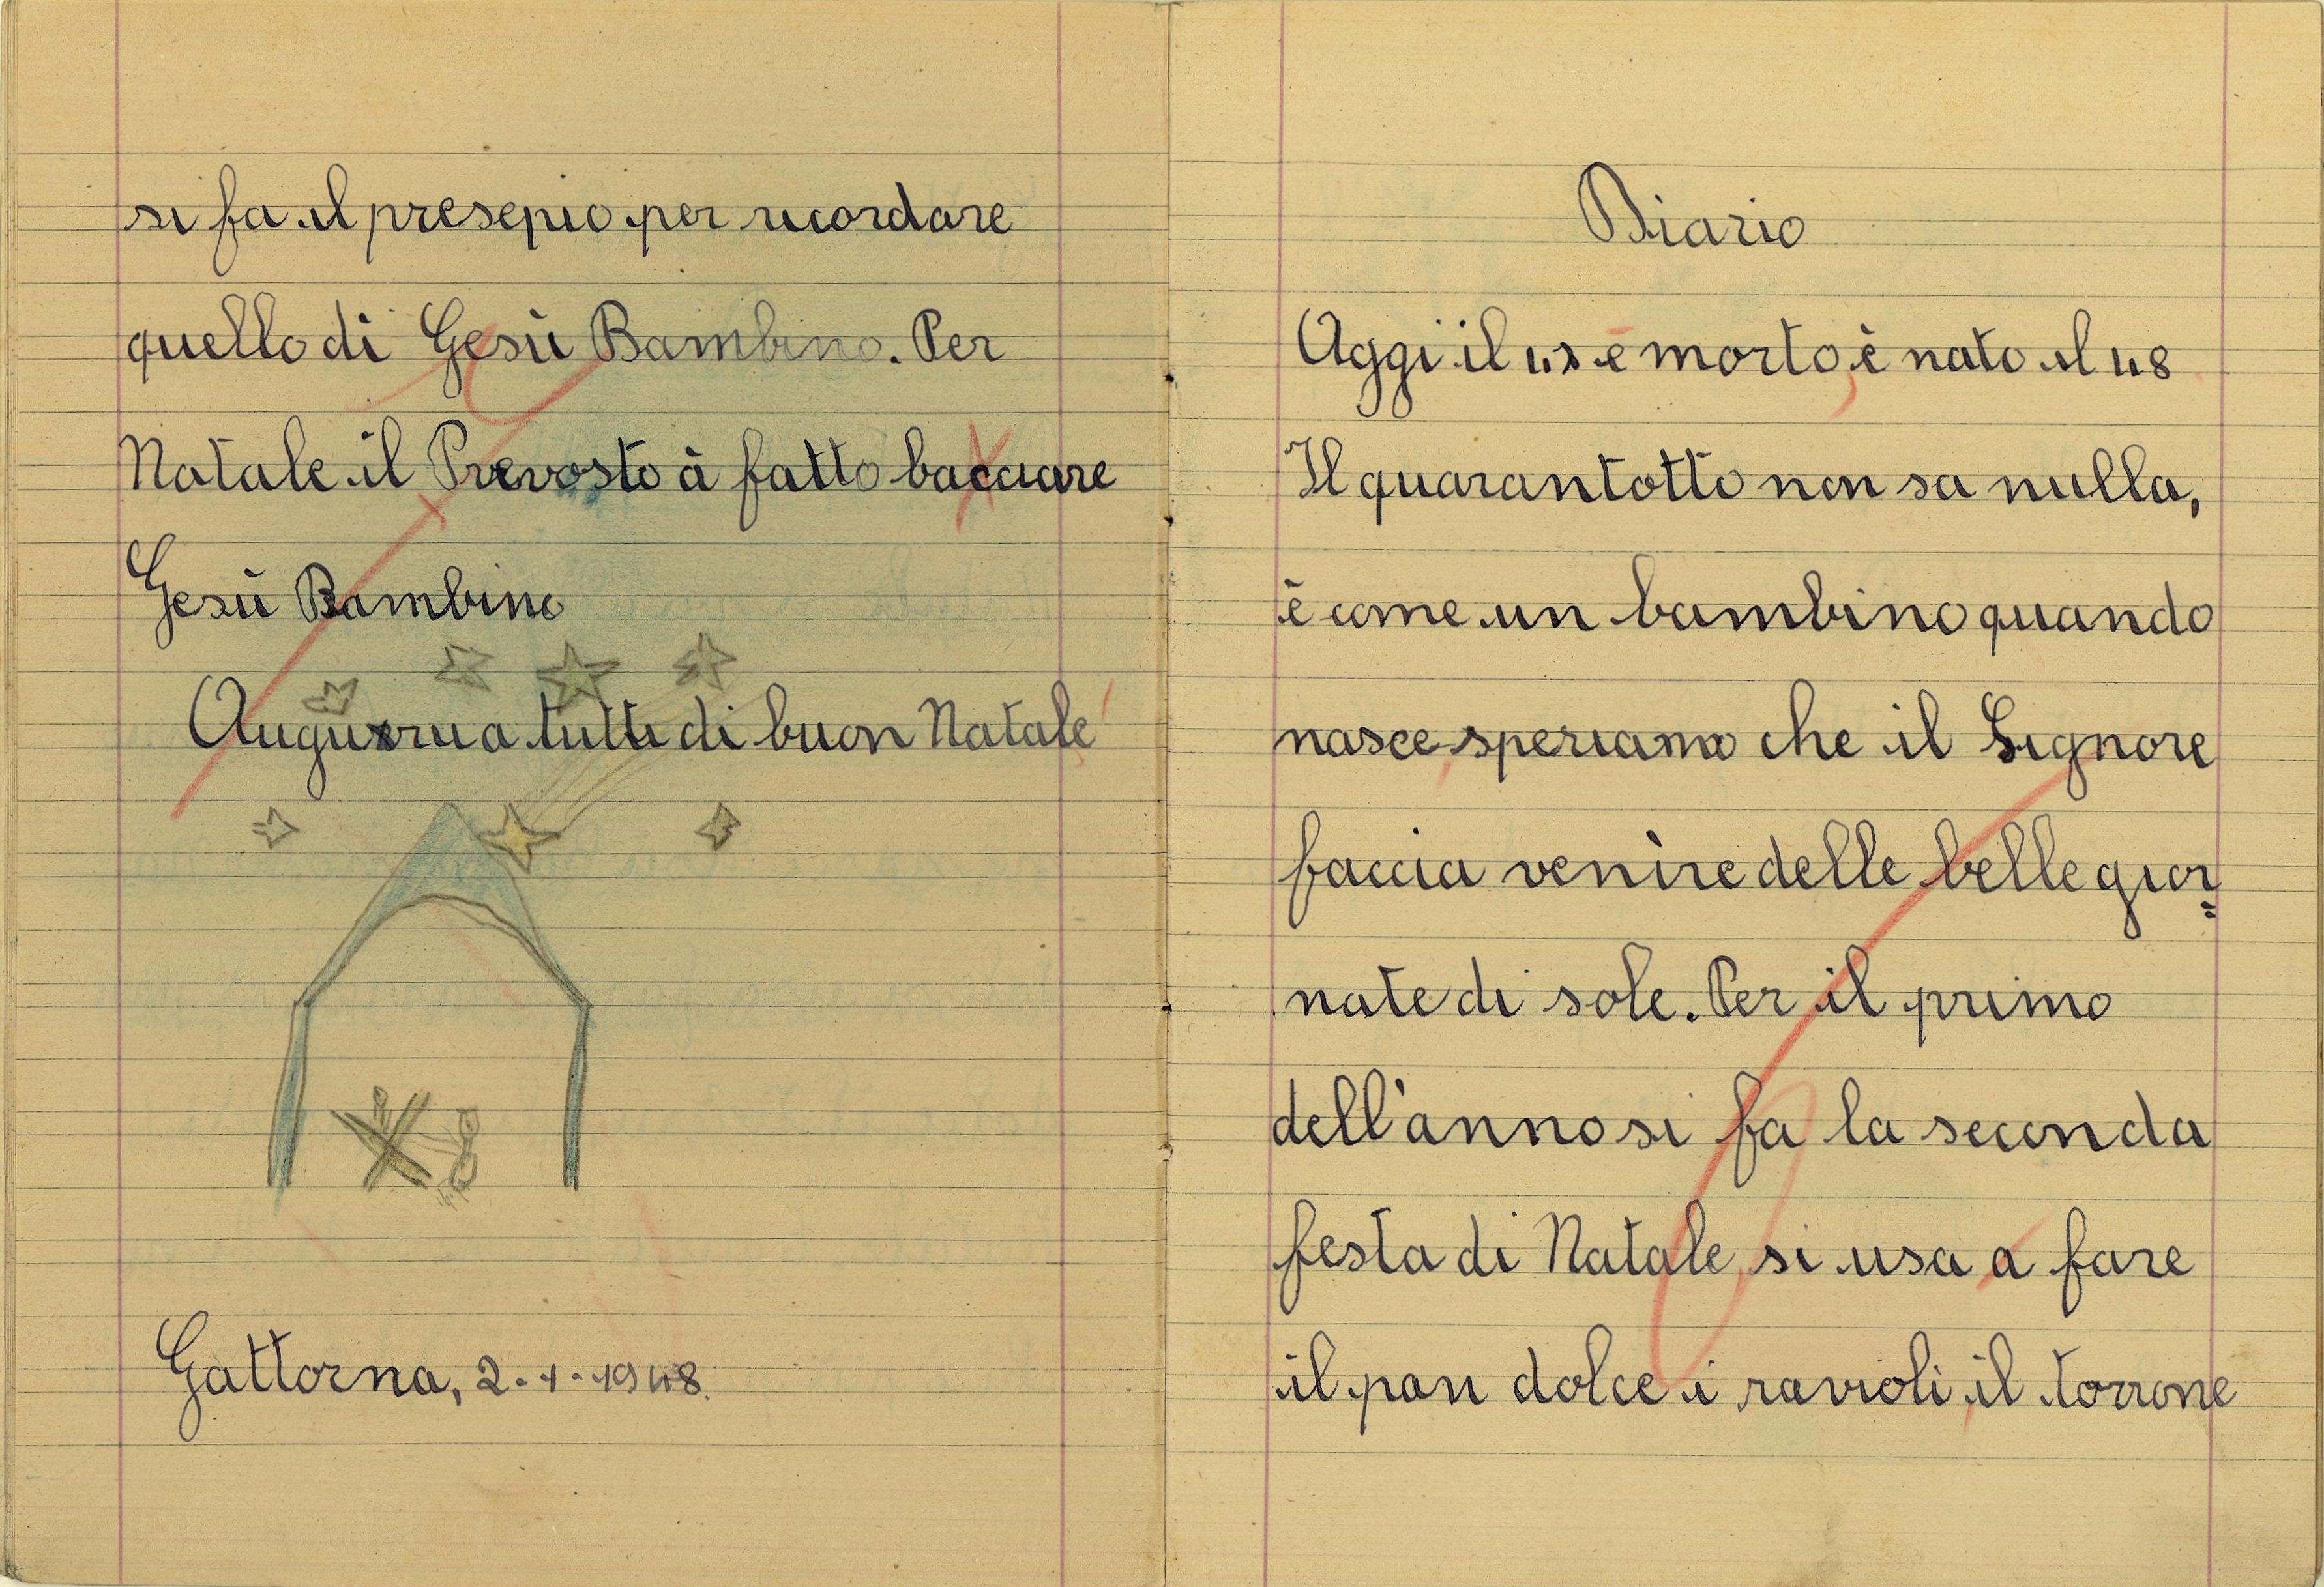 si fa il presepio per ricordare
quello di Gesù Bambino. Per
Natale il Prevosto à fatto bacciare
Gesù Bambino
Augurii a tutti di buon Natale
Gattorna, 2-1-1948.
Diario
Oggi il 47 è morto, è nato il 48
Il quarantotto non sa nulla,
è come un bambino quando
nasce, speriamo che il Signore
faccia venire delle belle gior=
nate di sole. Per il primo
dell'anno si fa la seconda
festa di Natale, si usa a fare
il pan dolce i ravioli, il torrone